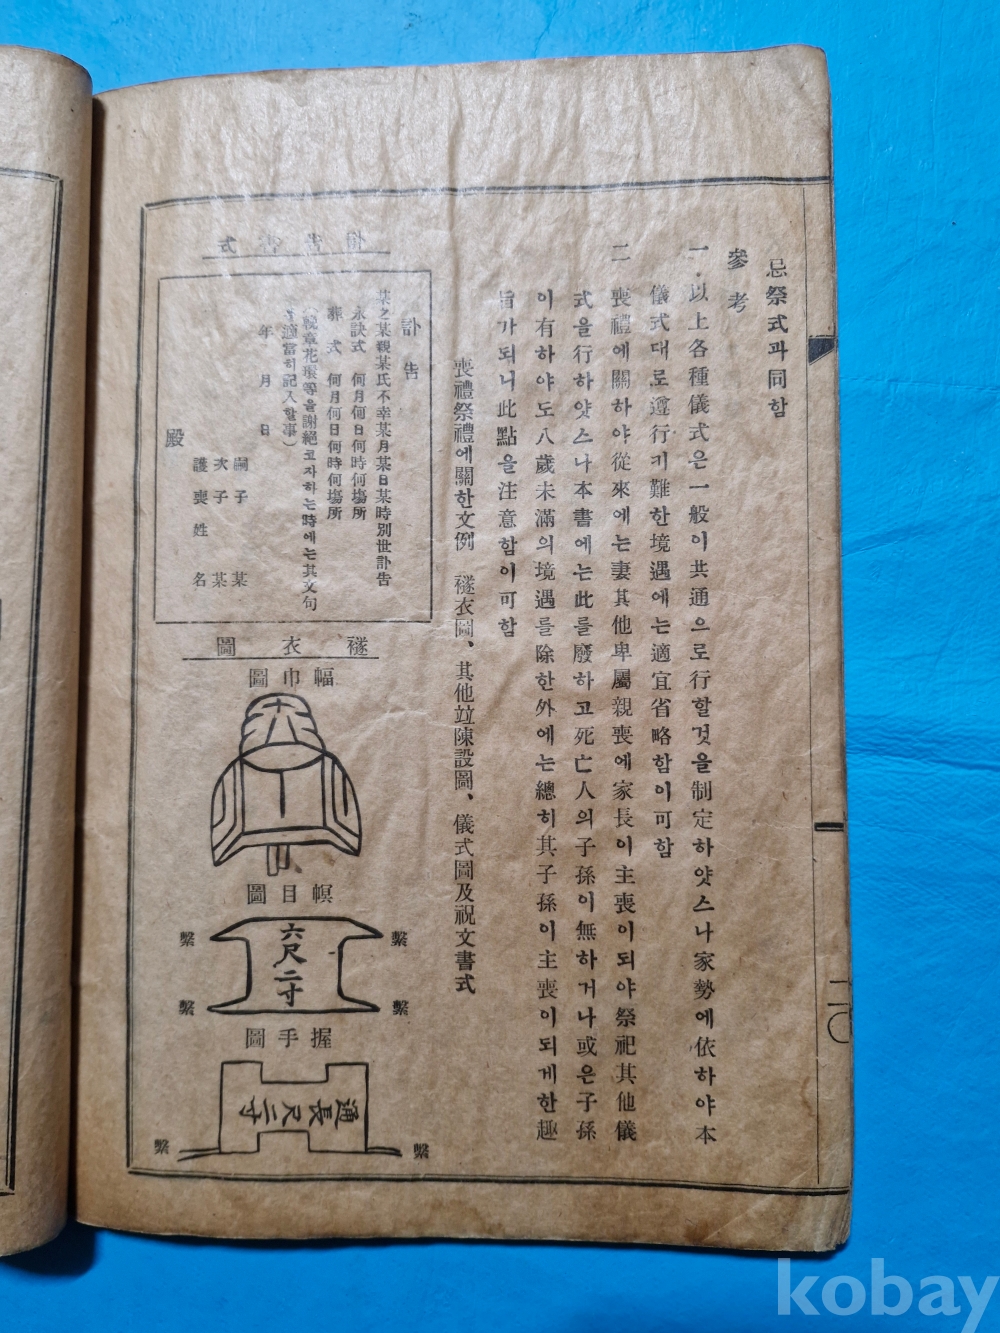 忌祭式과同함
參考
一.以上各種儀式은一般이共通으로行할것을制定하얏스나家勢에依하야本
儀式대로遵行키難한境遇에는適宜省略함이可함
二 喪禮에關하야從來에는妻其他卑屬親喪에家長이主喪이되야祭祀其他儀
式을行하얏스나本書에는此를廢하고死亡人의子孫이無하거나或은子孫
이有하야도八歲未滿의境遇를除한外에는總히其子孫이主喪이되게한趣
旨가되니此點을注意함이可함
喪禮祭禮에關한文例 襚衣圖、其他竝陳設圖、儀式圖及祝文書式
訃告書式
訃告
某之某親某氏不幸某月某日某時別世訃告
永訣式 何月何日何時何場所
葬式 何月何日何時何場所
(祝章花環等을謝絕코자하는時에는其文句
를適當히記入할事)
年 月 日
嗣子 某
次子 某
護喪 姓名
殿
襚衣圖
幅巾圖
幎目圖
繫
繫
六尺二寸
繫
繫
握手圖
通長尺二寸
繫
繫
二〇
kobay